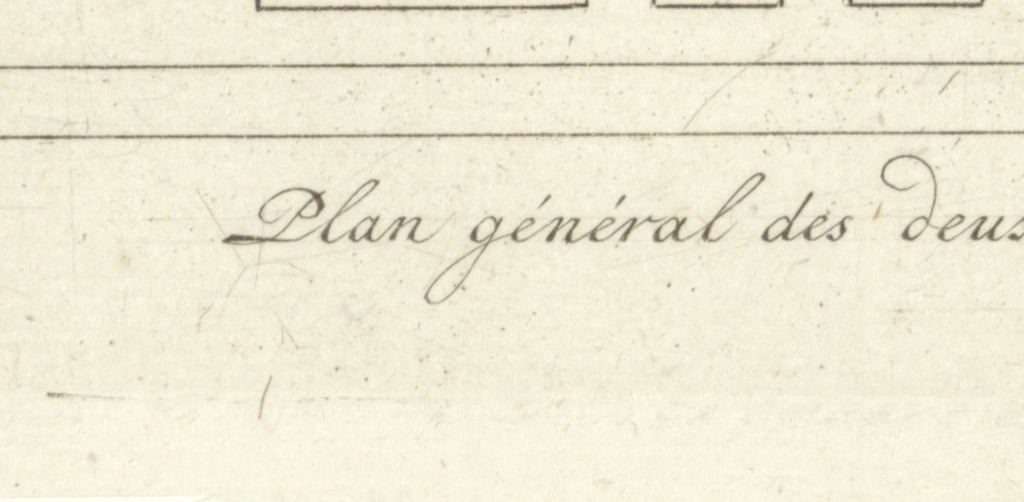 Plan général des deus